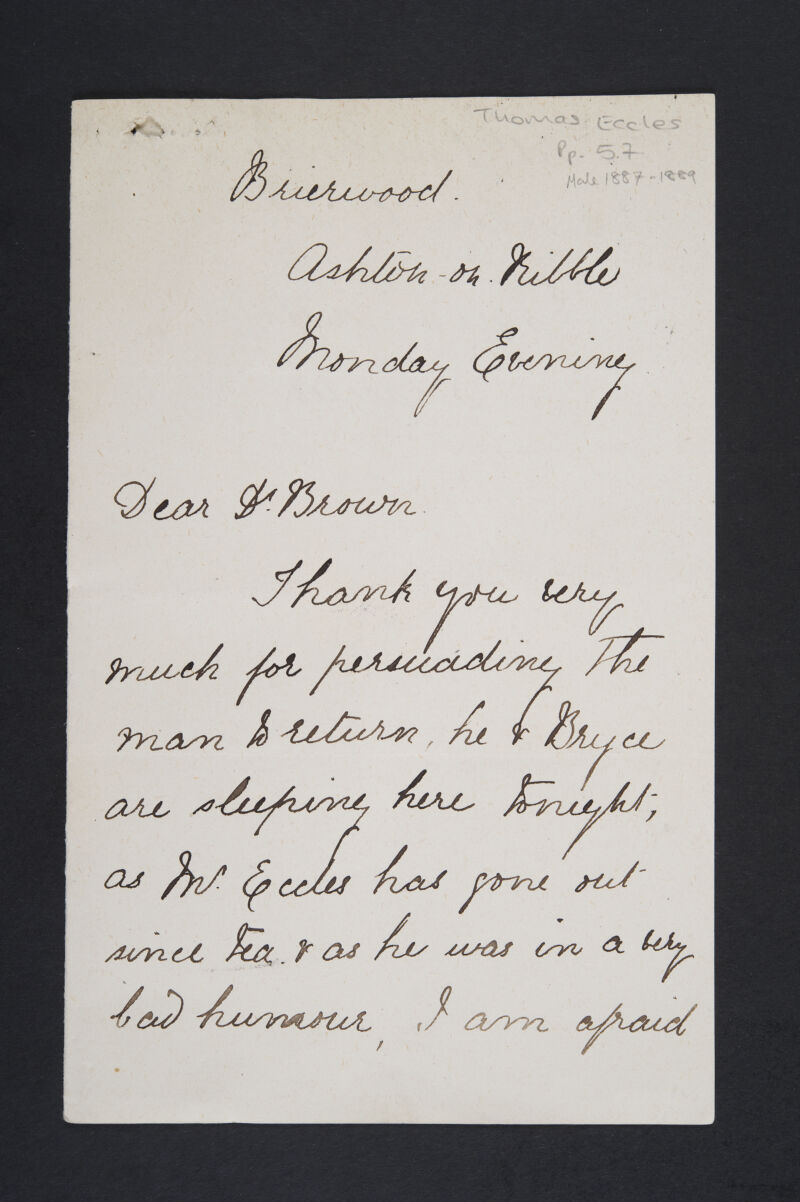 Thomas Eccles
Pp. 5.7
Male 1887-1889
Brierwood.
Ashton-on-Ribble
Monday Evening
Dear Dr. Brown.
Thank you very
much for persuading the
man to return, he & Bryce
are sleeping here tonight,
as Mr. Eccles has gone out
since tea. & as he was in a very
bad humour, I am afraid